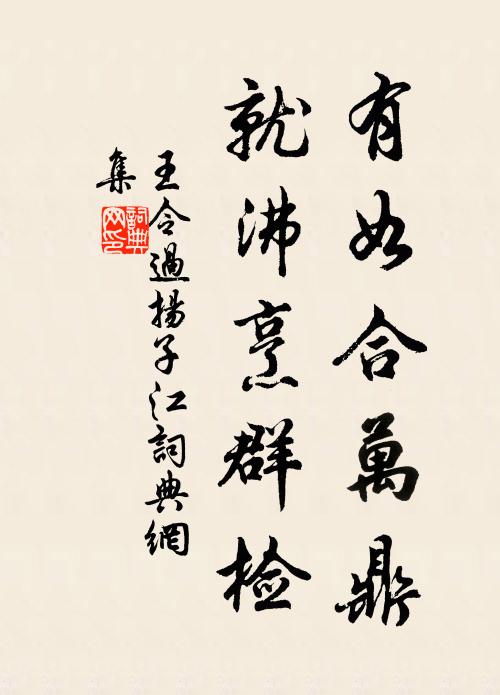 有如合萬鼎
就沸烹群檢
王令過揚子江詞典網
集
詞典
网印